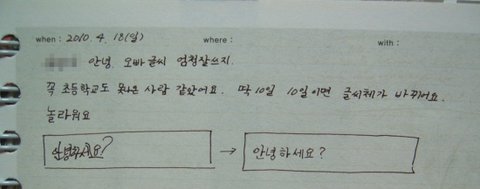 when : 2010. 4. 18(일) where : with :
안녕. 오빠 글씨 엄청잘쓰지.
꼭 초등학교도 못나온 사람 같았어요. 딱 10일 10일이면 글씨체가 바뀌어요.
놀라워요
안녕하세요? → 안녕하세요?